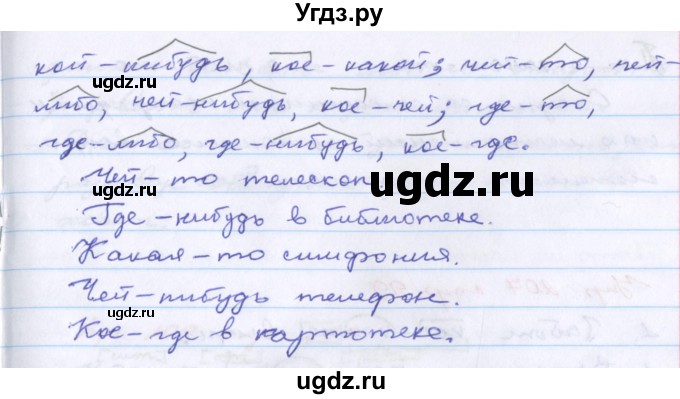 Угдз.ру
кой-нибудь, кое-какой; чей-то, чей-
либо, чей-нибудь, кое-чей; где-то,
где-либо, где-нибудь, кое-где.
Чей-то телескоп
Где-нибудь в библиотеке.
Какая-то симфония.
Чей-нибудь телефон.
Кое-где в картотеке.
ugdz.ru
ugdz.ru
ugdz.ru
ugdz.ru
ugdz.ru
ugdz.ru